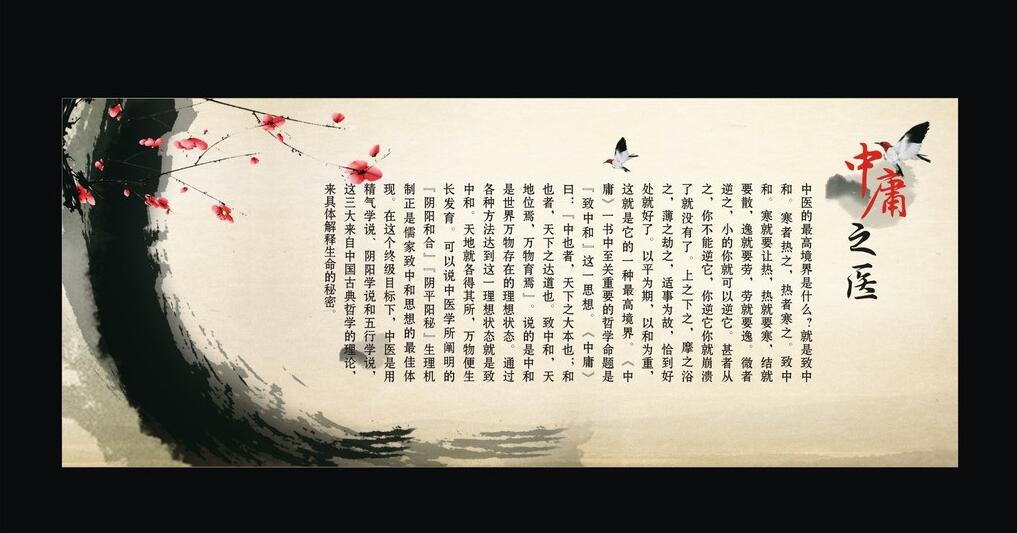 中庸之医
中医的最高境界是什么？就是致中
和。寒者热之，热者寒之。致中
和。寒就要让热，热就要寒，结就
要散，逸就要劳，劳就要逸。微者
逆之，小的你就可以逆它。甚者从
之，你不能逆它，你逆它你就崩溃
了就没有了。上之下之，摩之浴
之，薄之劫之，适事为故，恰到好
处就好了。以平为期，以和为重，
这就是它的一种最高境界。《中
庸》一书中至关重要的哲学命题是
『致中和』这一思想。《中庸》
曰：『中也者，天下之大本也；和
也者，天下之达道也。致中和，天
地位焉，万物育焉』。说的是中和
是世界万物存在的理想状态。通过
各种方法达到这一理想状态就是致
中和。天地就各得其所，万物便生
长发育。可以说中医学所阐明的
『阴阳和合』『阴平阳秘』生理机
制正是儒家致中和思想的最佳体
现。在这个终级目标下，中医是用
精气学说、阴阳学说和五行学说，
这三大来自中国古典哲学的理论，
来具体解释生命的秘密。